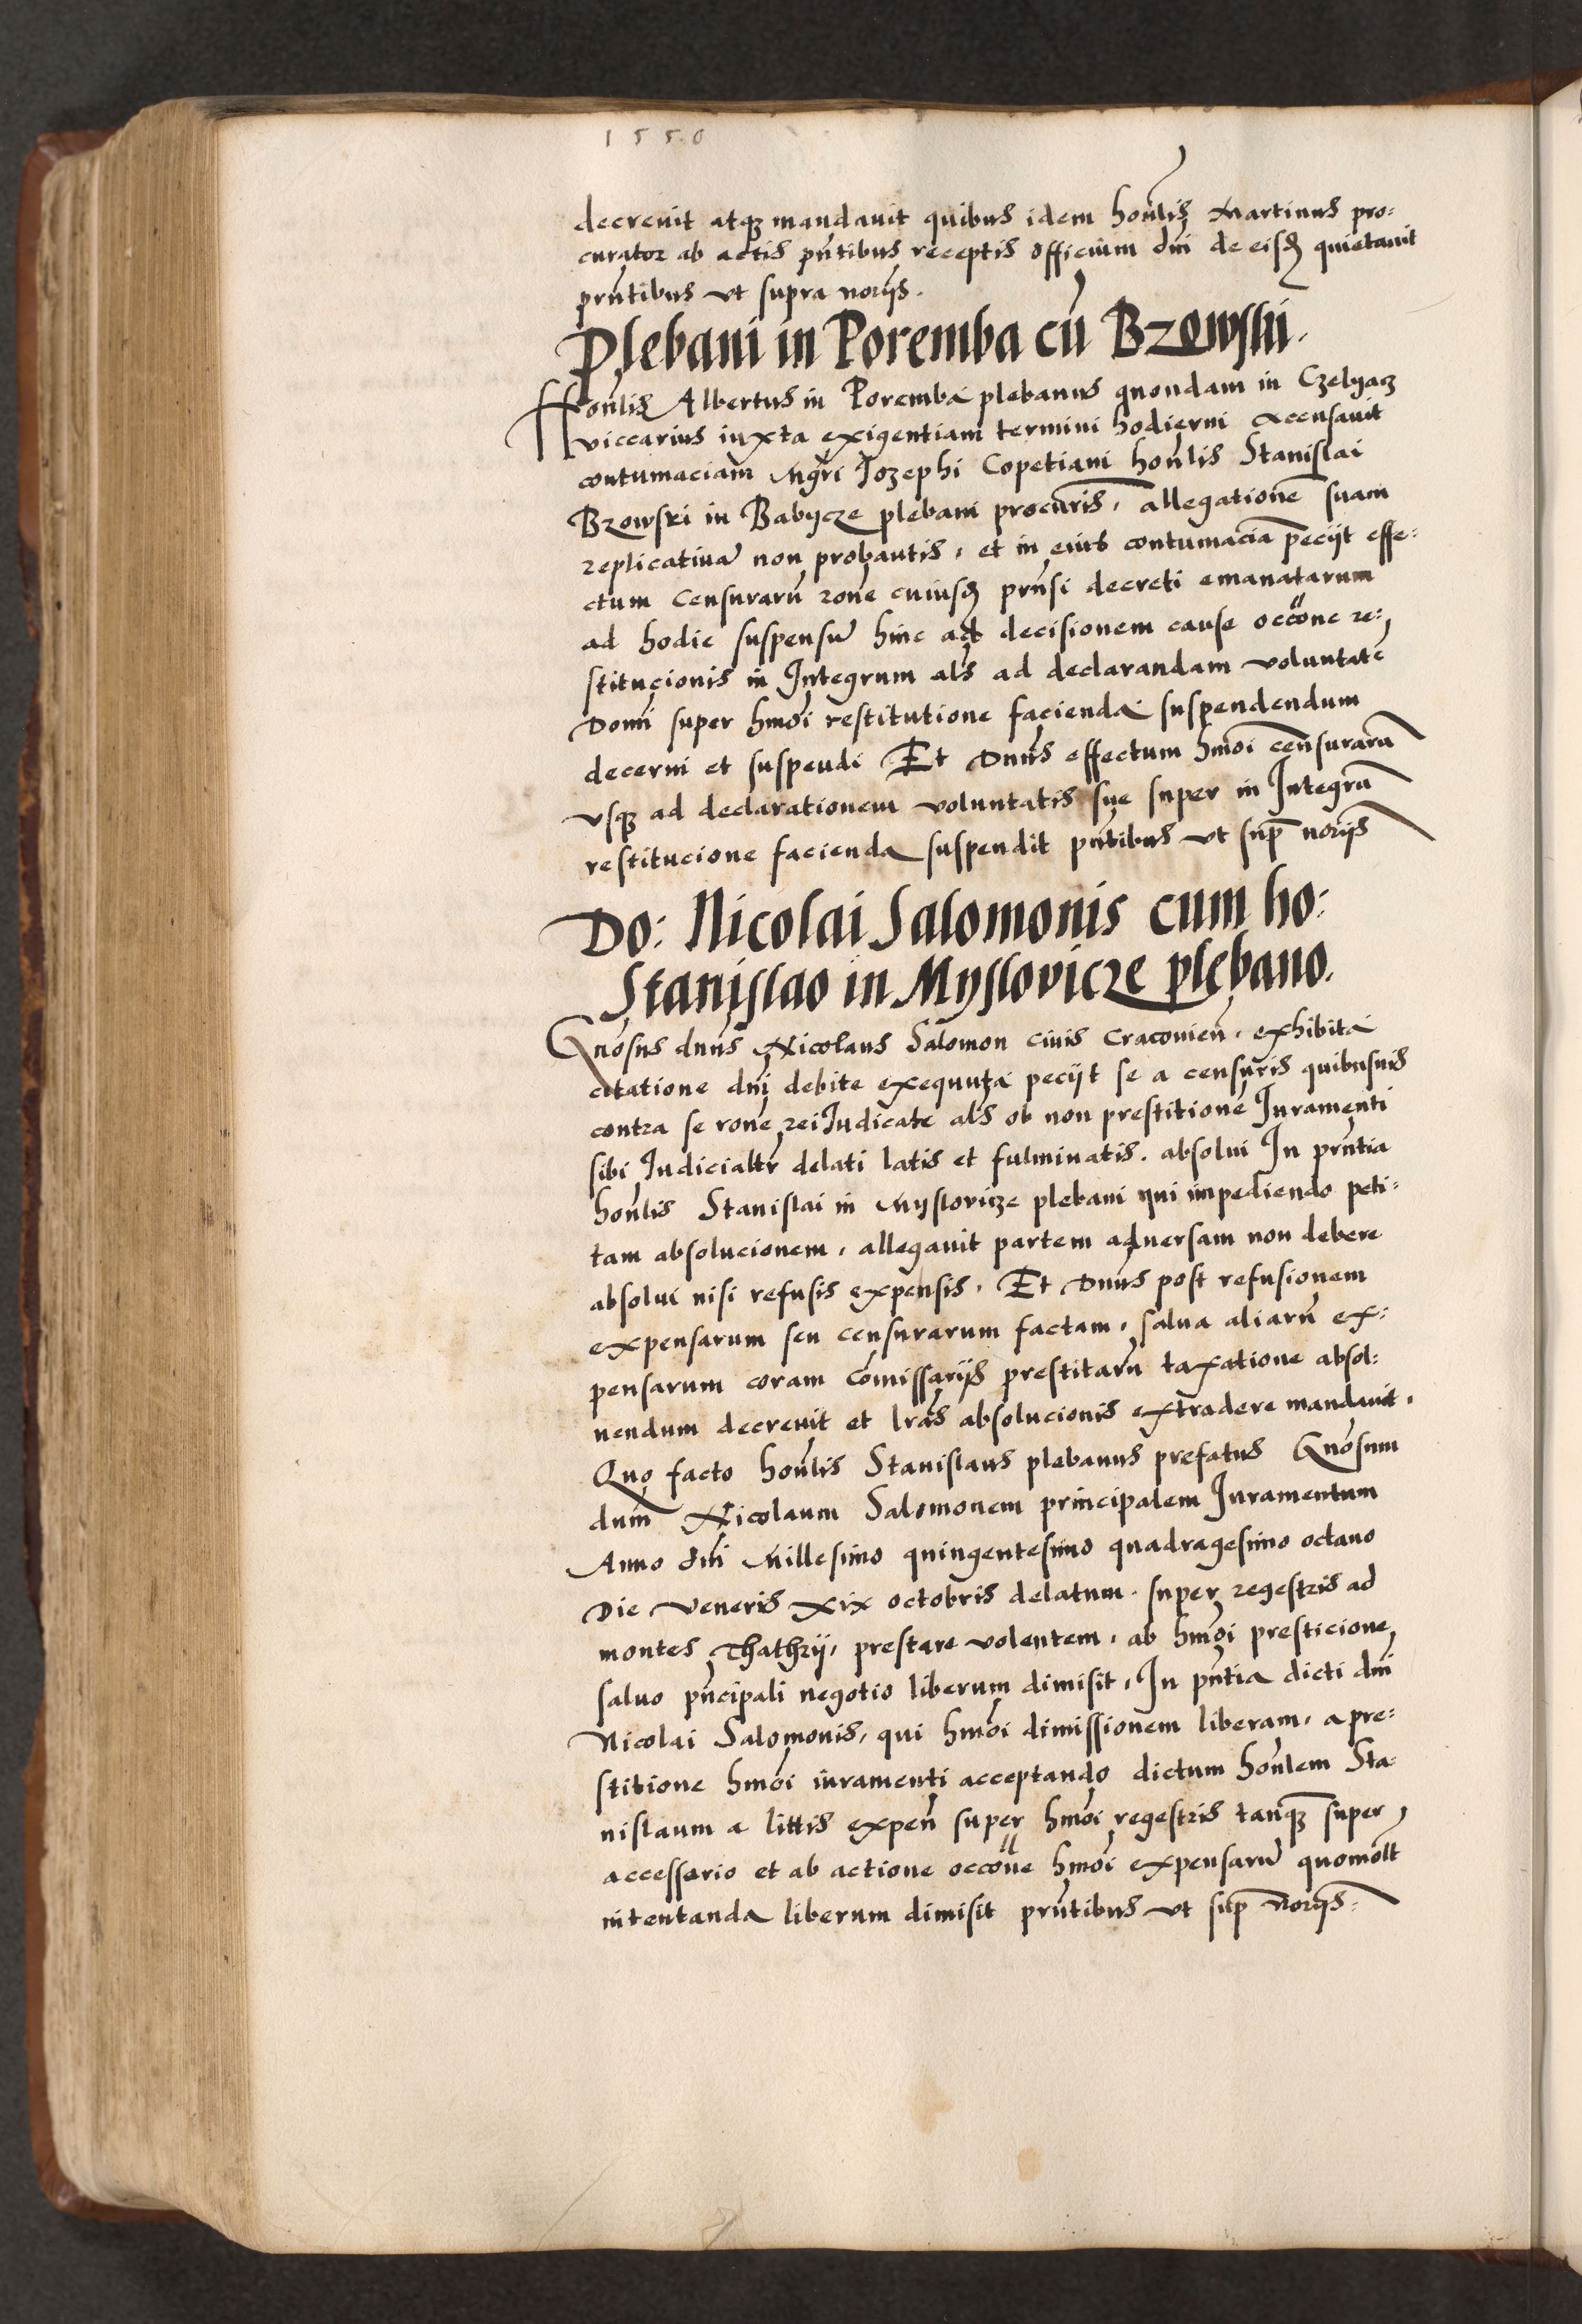 1550
decrevit atq3 mandavit quibus idem honlis Martinus pro-
curator ab actis pntibus receptis officium dni de eisd quietavit
prntibus vt supra noriis.
Plebani in Poremba cu Bzowski.
Honlis Albertus in Poremba plebanus quondam in Czelyacz
viccarius iuxta exigentiam termini hodierni accusavit
contumaciam Mgri Iozephi Copetiani honlis Stanislai
Bzowski in Babycze plebani procuris, allegatione suam
replicativa non probantis, et in eius contumacia peciit effe-
ctum censuraru rone cuiusd prnsi decreti emanatarum
ad hodie suspensu hinc ad decisionem cause occone re-
stitucionis in Integrum als ad declarandam voluntate
Domi super hmoi restitutione facienda suspendendum
decerni et suspendi Et Dnus effectum hmoi censuraru
vsq3 ad declarationem voluntatis sue super in Integru
restitucione facienda suspendit pntibus vt sup noriis
Do: Nicolai Salomonis cum ho:
Stanislao in Myslovicze plebano.
Gnosus dnus Nicolaus Salomon civis Cracovien, exhibita
citatione dni debite exequuta peciit se a censuris quibusvis
contra se rone rei Iudicate als ob non prestitione Iuramenti
sibi Iudicialtr delati latis et fulminatis. absolui In prntia
honlis Stanislai in Myslovicze plebani qui impediendo peti-
tam absolucionem, allegavit partem adversam non debere
absolui nisi refusis expensis. Et Dnus post refusionem
expensarum seu censurarum factam, salva aliaru ex-
pensarum coram comissariis prestitaru taxatione absol-
uendum decrevit et lras absolucionis extradere mandavit.
Quo facto honlis Stanislaus plebanus prefatus Gnosum
dnum Nicolaum Salomonem principalem Iuramentum
Anno dni Millesimo quingentesimo quadragesimo octavo
Die veneris xix octobris delatum. super regestris ad
montes Thathry, prestare volentem, ab hmoi presticione
salvo pncipali negotio liberum dimisit, In pntia dicti dni
Nicolai Salomonis, qui hmoi dimissionem liberam, a pre-
stitione hmoi iuramenti acceptando dictum honlem Sta-
nislaum a littis expen super hmoi regestris tanq3 super
accessorio et ab actione occone hmoi expensaru quomolt
intentanda liberum dimisit prntibus vt sup noriis.